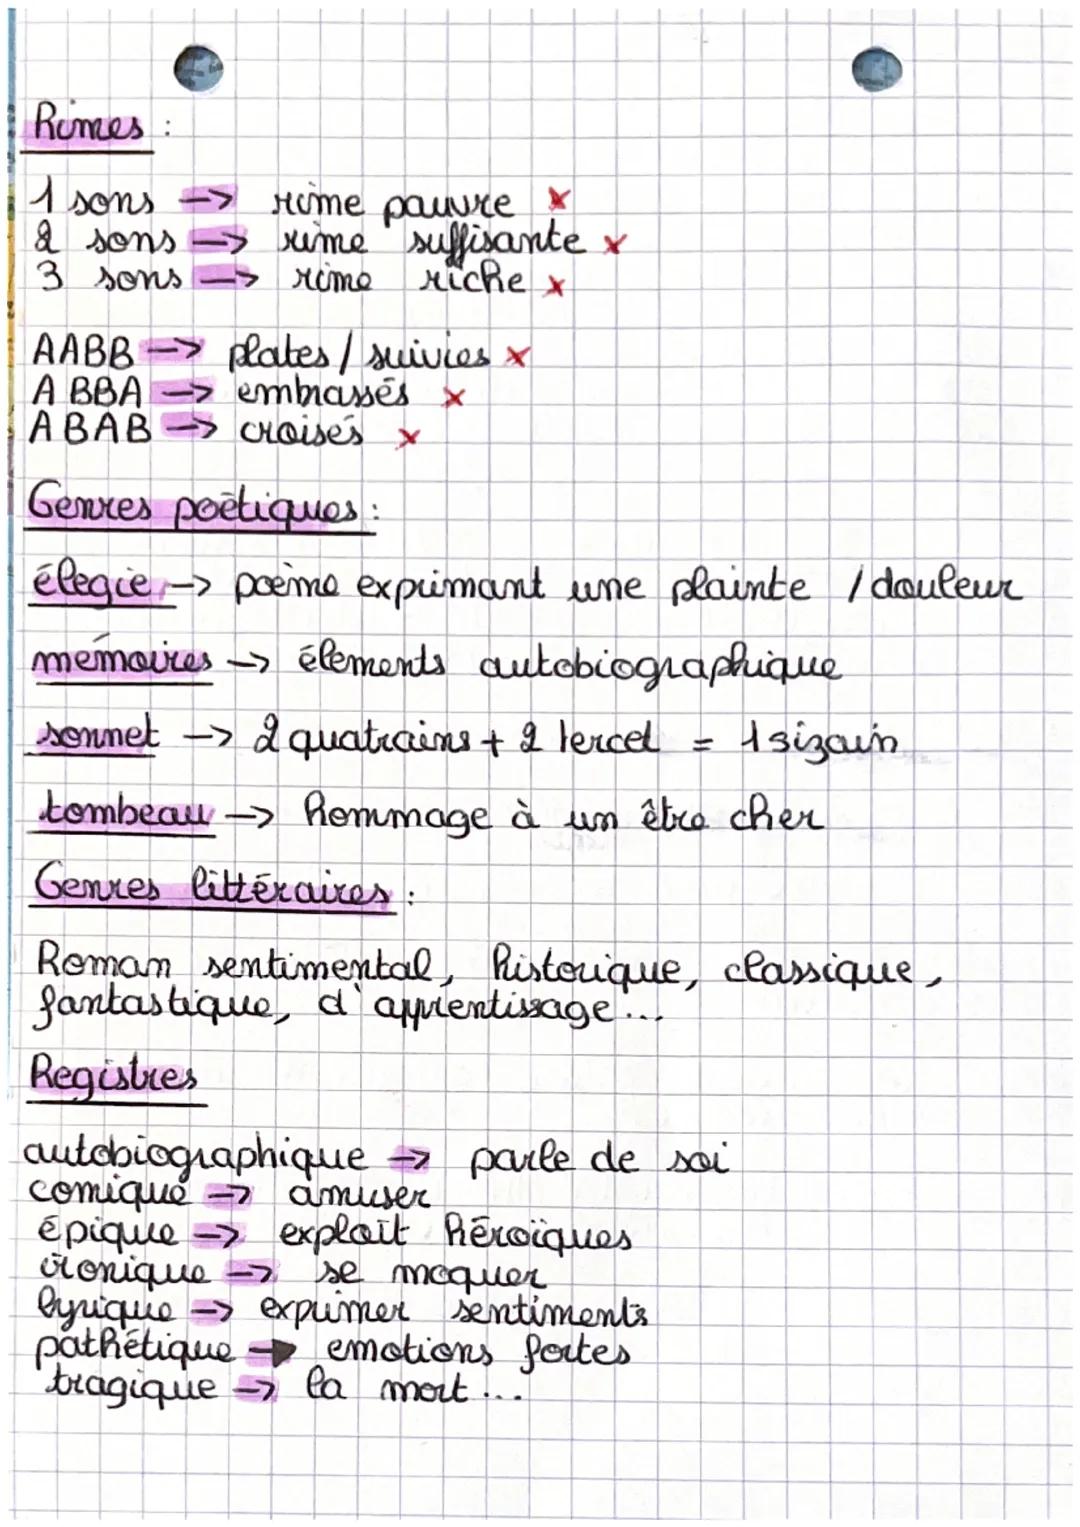 Rimes :
1 sons -> rime pauvre x
2 sons -> rime suffisante x
3 sons -> rime riche x
AABB -> plates / suivies x
ABBA -> embrassés x
ABAB -> croisés x
Genres poëtiques :
élegie -> poème exprimant une plainte / douleur
mémoires -> élements autobiographique
sonnet -> 2 quatrains + 2 tercet = 1 sizain
tombeau -> hommage à un être cher
Genres littéraires :
Roman sentimental, historique, classique,
fantastique, d'apprentissage...
Registres
autobiographique -> parle de soi
comique -> amuser
épique -> exploit héroïques
ironique -> se moquer
lyrique -> exprimer sentiments
pathétique -> emotions fortes
tragique -> la mort...